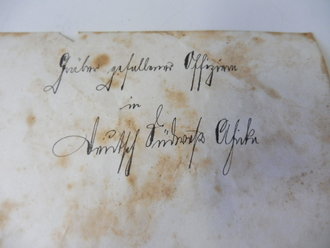 Gräber gefallener Offiziere
in
Deutsch Südwest Afrika